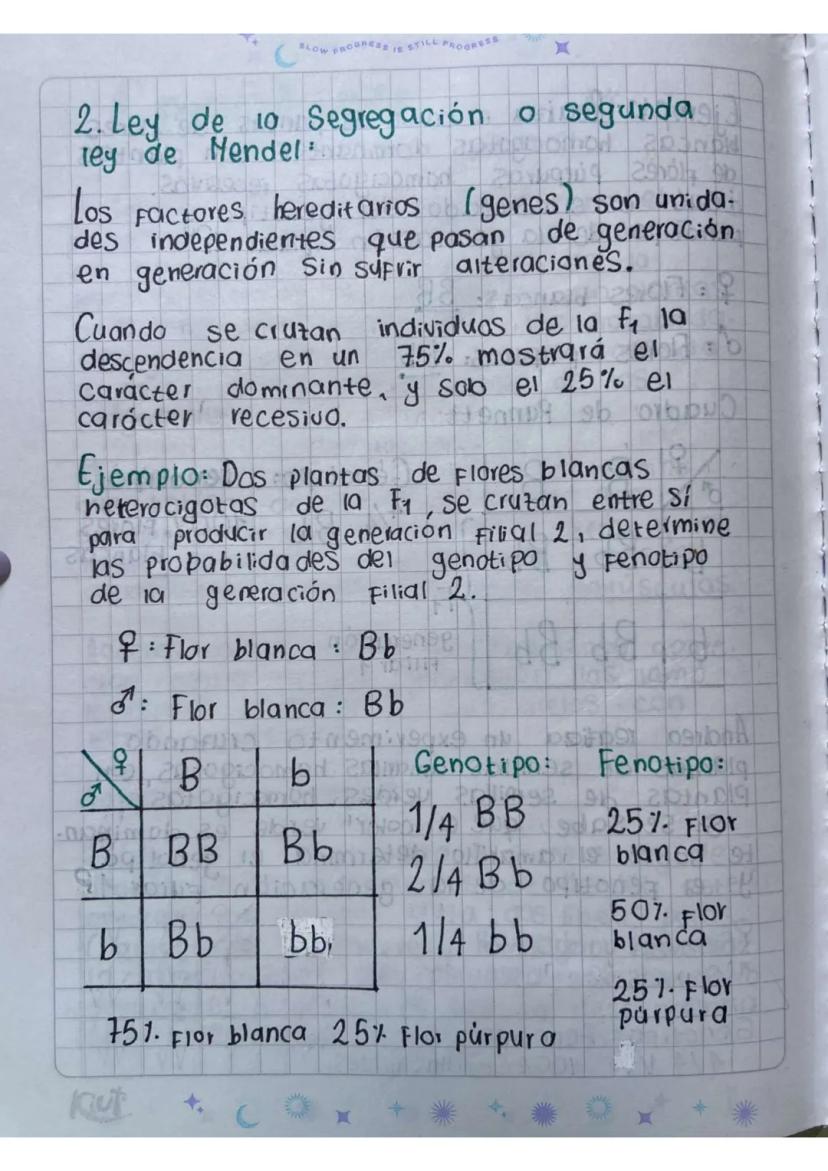 SLOW PROGRESS IS STILL PROGRESS
2. Ley de la Segregación o segunda
ley de Mendel:
Los factores hereditarios (genes) son unida-
des independientes que pasan de generación
en generación sin sufrir alteraciones.
Cuando se cruzan individuos de la f1 la
descendencia en un 75% mostrará el
carácter dominante, y solo el 25% el
carácter recesivo.
Ejemplo: Dos plantas de flores blancas
heterocigotas de la F1, se cruzan entre sí
para producir la generación filial 2, determine
las probabilidades del genotipo y fenotipo
de la generación filial 2.
♀: Flor blanca: Bb
♂: Flor blanca: Bb
♀ ♂ B b
B BB Bb
b Bb bb
Genotipo:
1/4 BB
2/4 Bb
1/4 bb
Fenotipo:
25% Flor
blanca
50% Flor
blanca
25% Flor
púrpura
75% Flor blanca 25% Flor púrpura